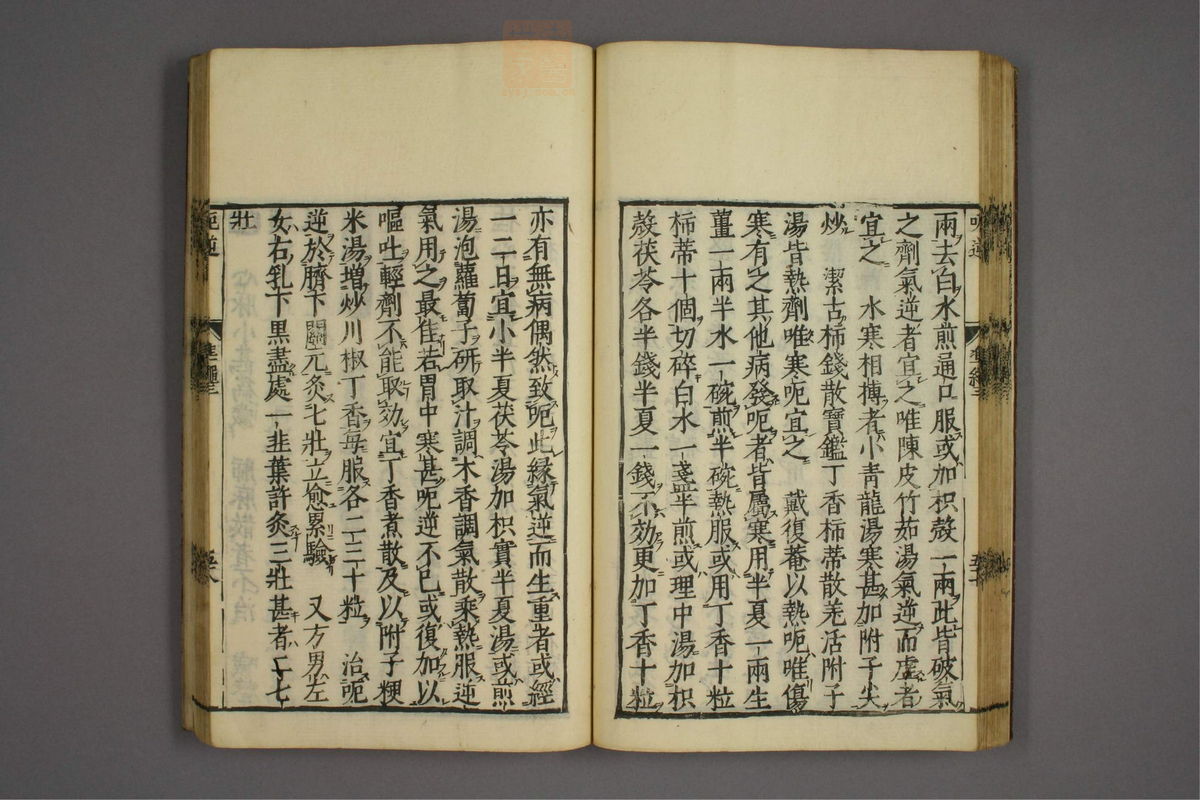 兩去白水煎通口服或加枳殼一兩此皆破氣
之劑氣逆者宜之唯陳皮竹茹湯氣逆而虛者
宜之　水寒相搏者小青龍湯寒甚加附子尖
炒　潔古柿錢散寶鑑丁香柿蒂散羌活附子
湯皆熱劑唯寒呃宜之　戴復菴以熱呃唯傷
寒有之其他病發呃者皆屬寒用半夏一兩生
薑一兩半水一碗煎半碗熱服或用丁香十粒
柿蒂十個切碎白水一盞半煎或理中湯加枳
殼茯苓各半錢半夏一錢不效更加丁香十粒
亦有無病偶然致呃此緣氣逆而生重者或經
一二日宜小半夏茯苓湯加枳實半夏湯或煎
湯泡蘿蔔子研取汁調木香調氣散乘熱服逆
氣用之最佳若胃中寒甚呃逆不已或復加以
嘔吐輕劑不能取効宜丁香煮散及以附子粳
米湯增炒川椒丁香每服各二三十粒　治呃
逆於臍下關元灸七壯立愈累驗　又方男左
女右乳下黑盡處一韭葉許灸三壯甚者二七
壯
呃逆